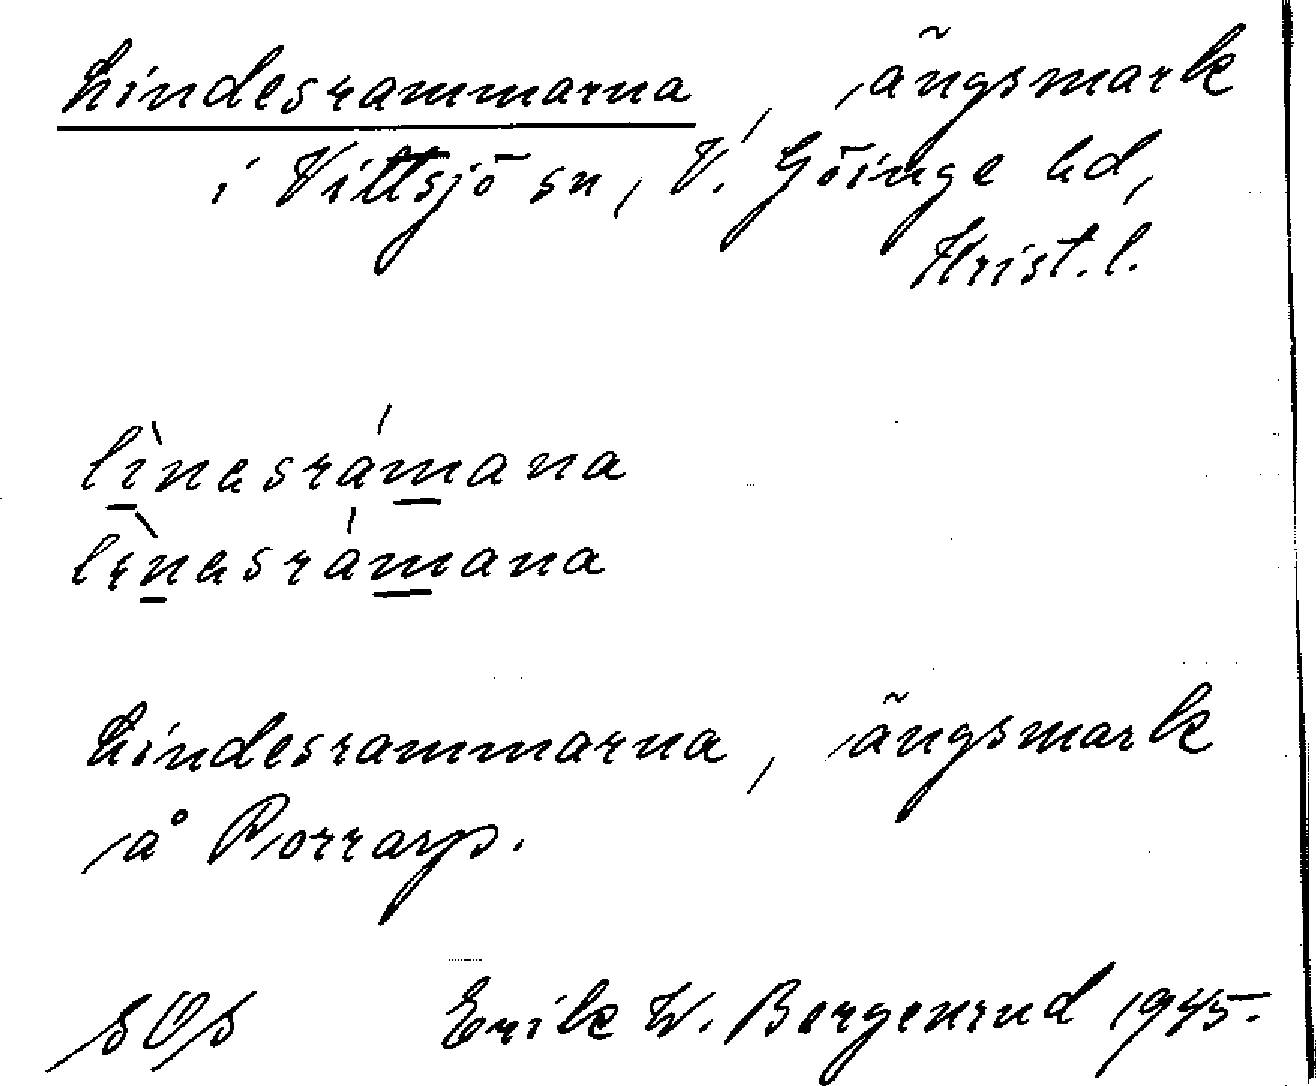 Lindesrammarna, ängsmark
i Vittsjö sn, V. Göinge hd,
Krist. l.
lìnasrámana
lìnasrámana
Lindesrammarna, ängsmark
å Porrarp.
SOS Erik W. Bergenrud 1945.